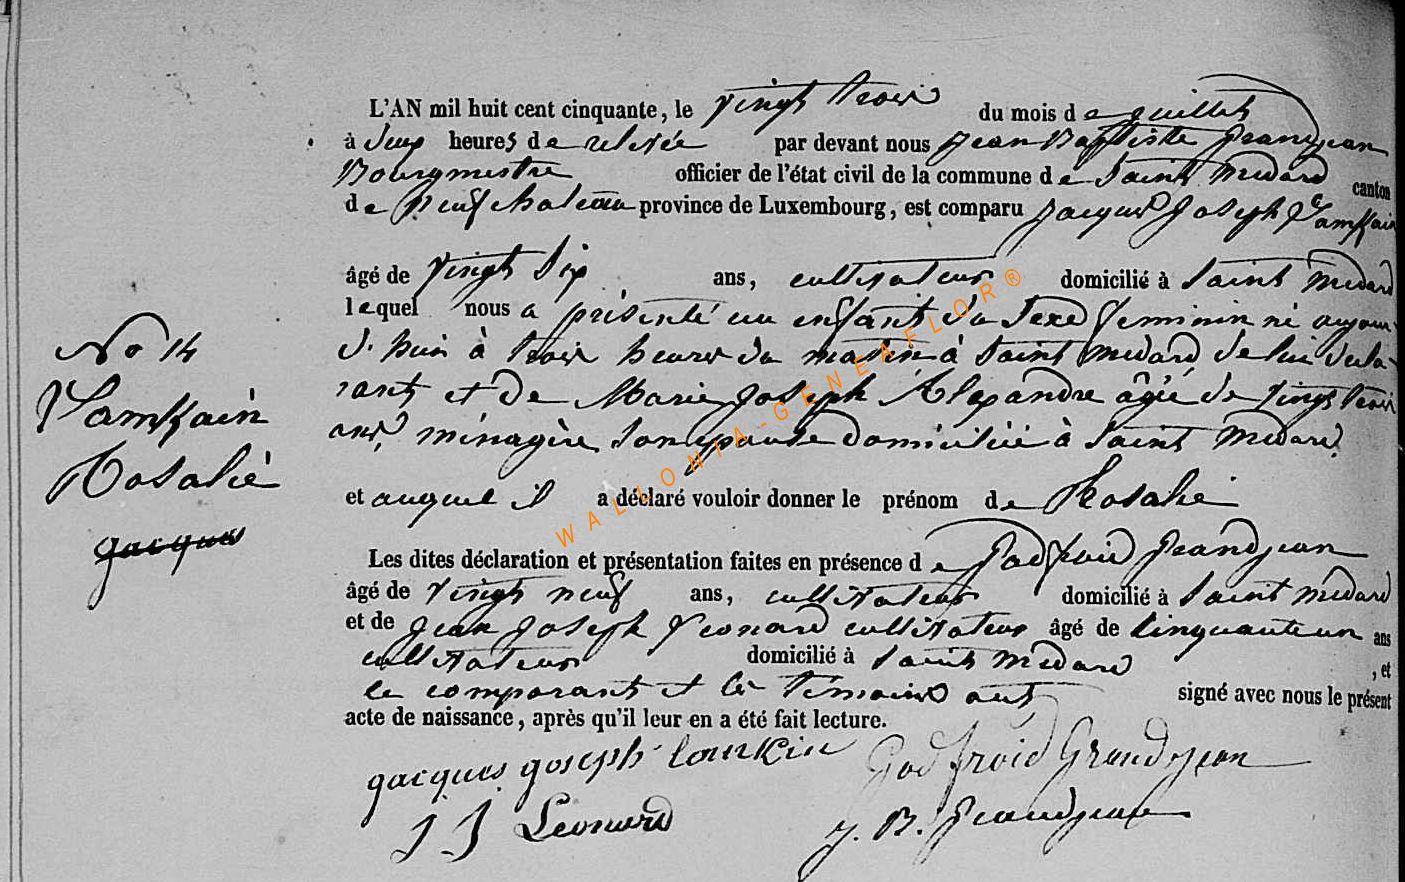 L'AN mil huit cent cinquante, le vingt trois du mois de juillet
à deux heures de relevée par devant nous Jean Baptiste Grandjean
Bourgmestre officier de l'état civil de la commune de Saint Médard canton
de Neufchateau province de Luxembourg, est comparu Jacques Joseph Lamkain
âgé de vingt six ans, cultivateur domicilié à Saint Médard
lequel nous a présenté un enfant du sexe feminin né aujour-
d'huis à trois heures du matin à Saint Médard de lui décla-
rant et de Marie Joseph Alexandre âgée de vingt trois
ans, ménagère son épouse domiciliée à Saint Médard
et auquel il a déclaré vouloir donner le prénom de Rosalie
Les dites déclaration et présentation faites en présence de Godfroid Grandjean
âgé de vingt neuf ans, cultivateur domicilié à Saint Médard
et de Jean Joseph Léonard cultivateur âgé de cinquante un ans
cultivateur domicilié à Saint Médard , et
le comparant et les témoins ont signé avec nous le présent
acte de naissance, après qu'il leur en a été fait lecture.
Jacques Joseph Lamkin Godfroid Grandjean
J J Léonard J. B. Grandjean
No 14
Lamkain
Rosalie
Jacques
WALLONIA-GENEAFLOR®